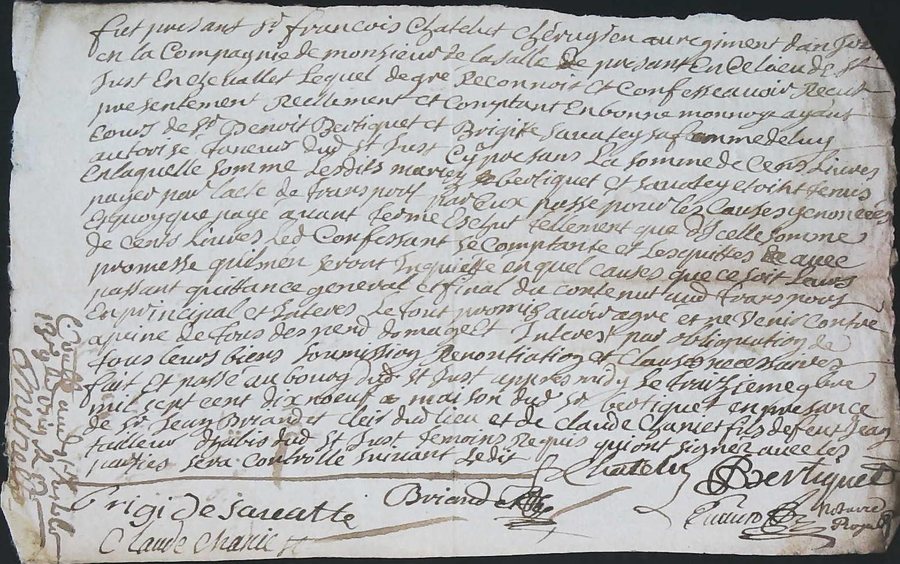 fut presant Sr. francois Chatelut Chirugien au regiment danjou
en la Compagnie de monsieur de la salle de presant En ce lieu de St
Just En chevallet Lequel de gre Reconnoit et Confesse avoir Receu
presentement Reellement et Comptant En bonne monnoye ayant
Cours de Sr. Benoit Bertiquet et Brigite Sauatey sa femme de luy
autorisé dud St Just Cy presans La somme de Cents Livres
En laquelle somme Lesdits mariez Bertiquet et Sauatey etoint tenus
payer par lacte de transport par Eux passé pour les Causes y enoncées
Et quoyque paye auant terme Eschut tellement que dicelle somme
de cents Livres Led Confessant se Comptante et Les quitte avec
promesse quil nen seront Inquiette en quel causes que ce soit Leurs
passant quittance general et final du contenut aud transport
En principal et Interes Le tout promis avoir agré et ne venir Contre
a peine de tous despend domage et Interest par obligation de
tous leurs biens soumission Renontiation et Clauses necessaires
fait et passé au bourg dud St Just appres midy Le traizieme 9bre
mil sept cent dix noeuf a maison dud Sr Bertiquet en presance
de Sr. Jean Briand et Clerc dud lieu et de Claude Chanie fils de feut Jean
tailleur dhabis dud St Just temoins Requis qui ont signez avec les
parties sera Controlle suivant Ledit
Chatelu
Bertiquet
Brigi de sauatte
Briand
Notaire
Royal
Claude Chanie